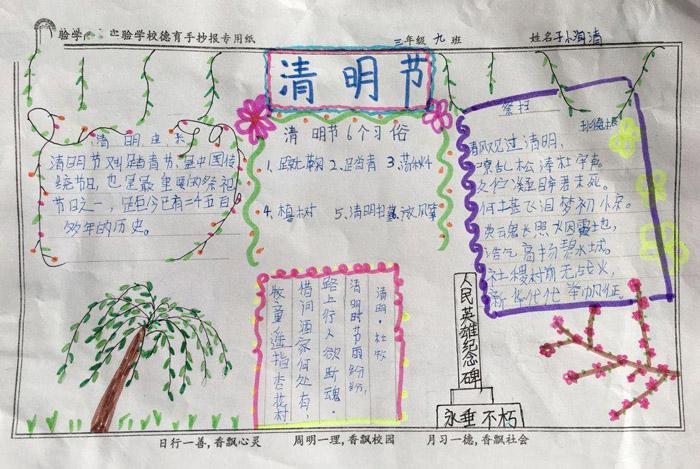 验学校德育手抄报专用纸
三年级 九 班
姓名
清明节
清明由来
清明节又叫踏青节,是中国传
统节日,也是最重要的祭祀
节日之一,距今已有二千五百
多年的历史。
清明节6个习俗
1、蹴鞠 2、踏青 3、荡秋千
4、植树 5、清明 放风筝
祭扫
清风 过清明,
松涛
久伫凝碑君未死。
何土甚飞泪梦初
浩气高扬碧水城。
社稷 前无战火,
新 代代举 征。
清明·杜牧
清明时节雨纷纷,
路上行人欲断魂。
借问酒家何处有,
牧童遥指杏花村
人民英雄纪念碑
永垂不朽
日行一善,香飘心灵 周明一理,香飘校园 月习一德,香飘社会